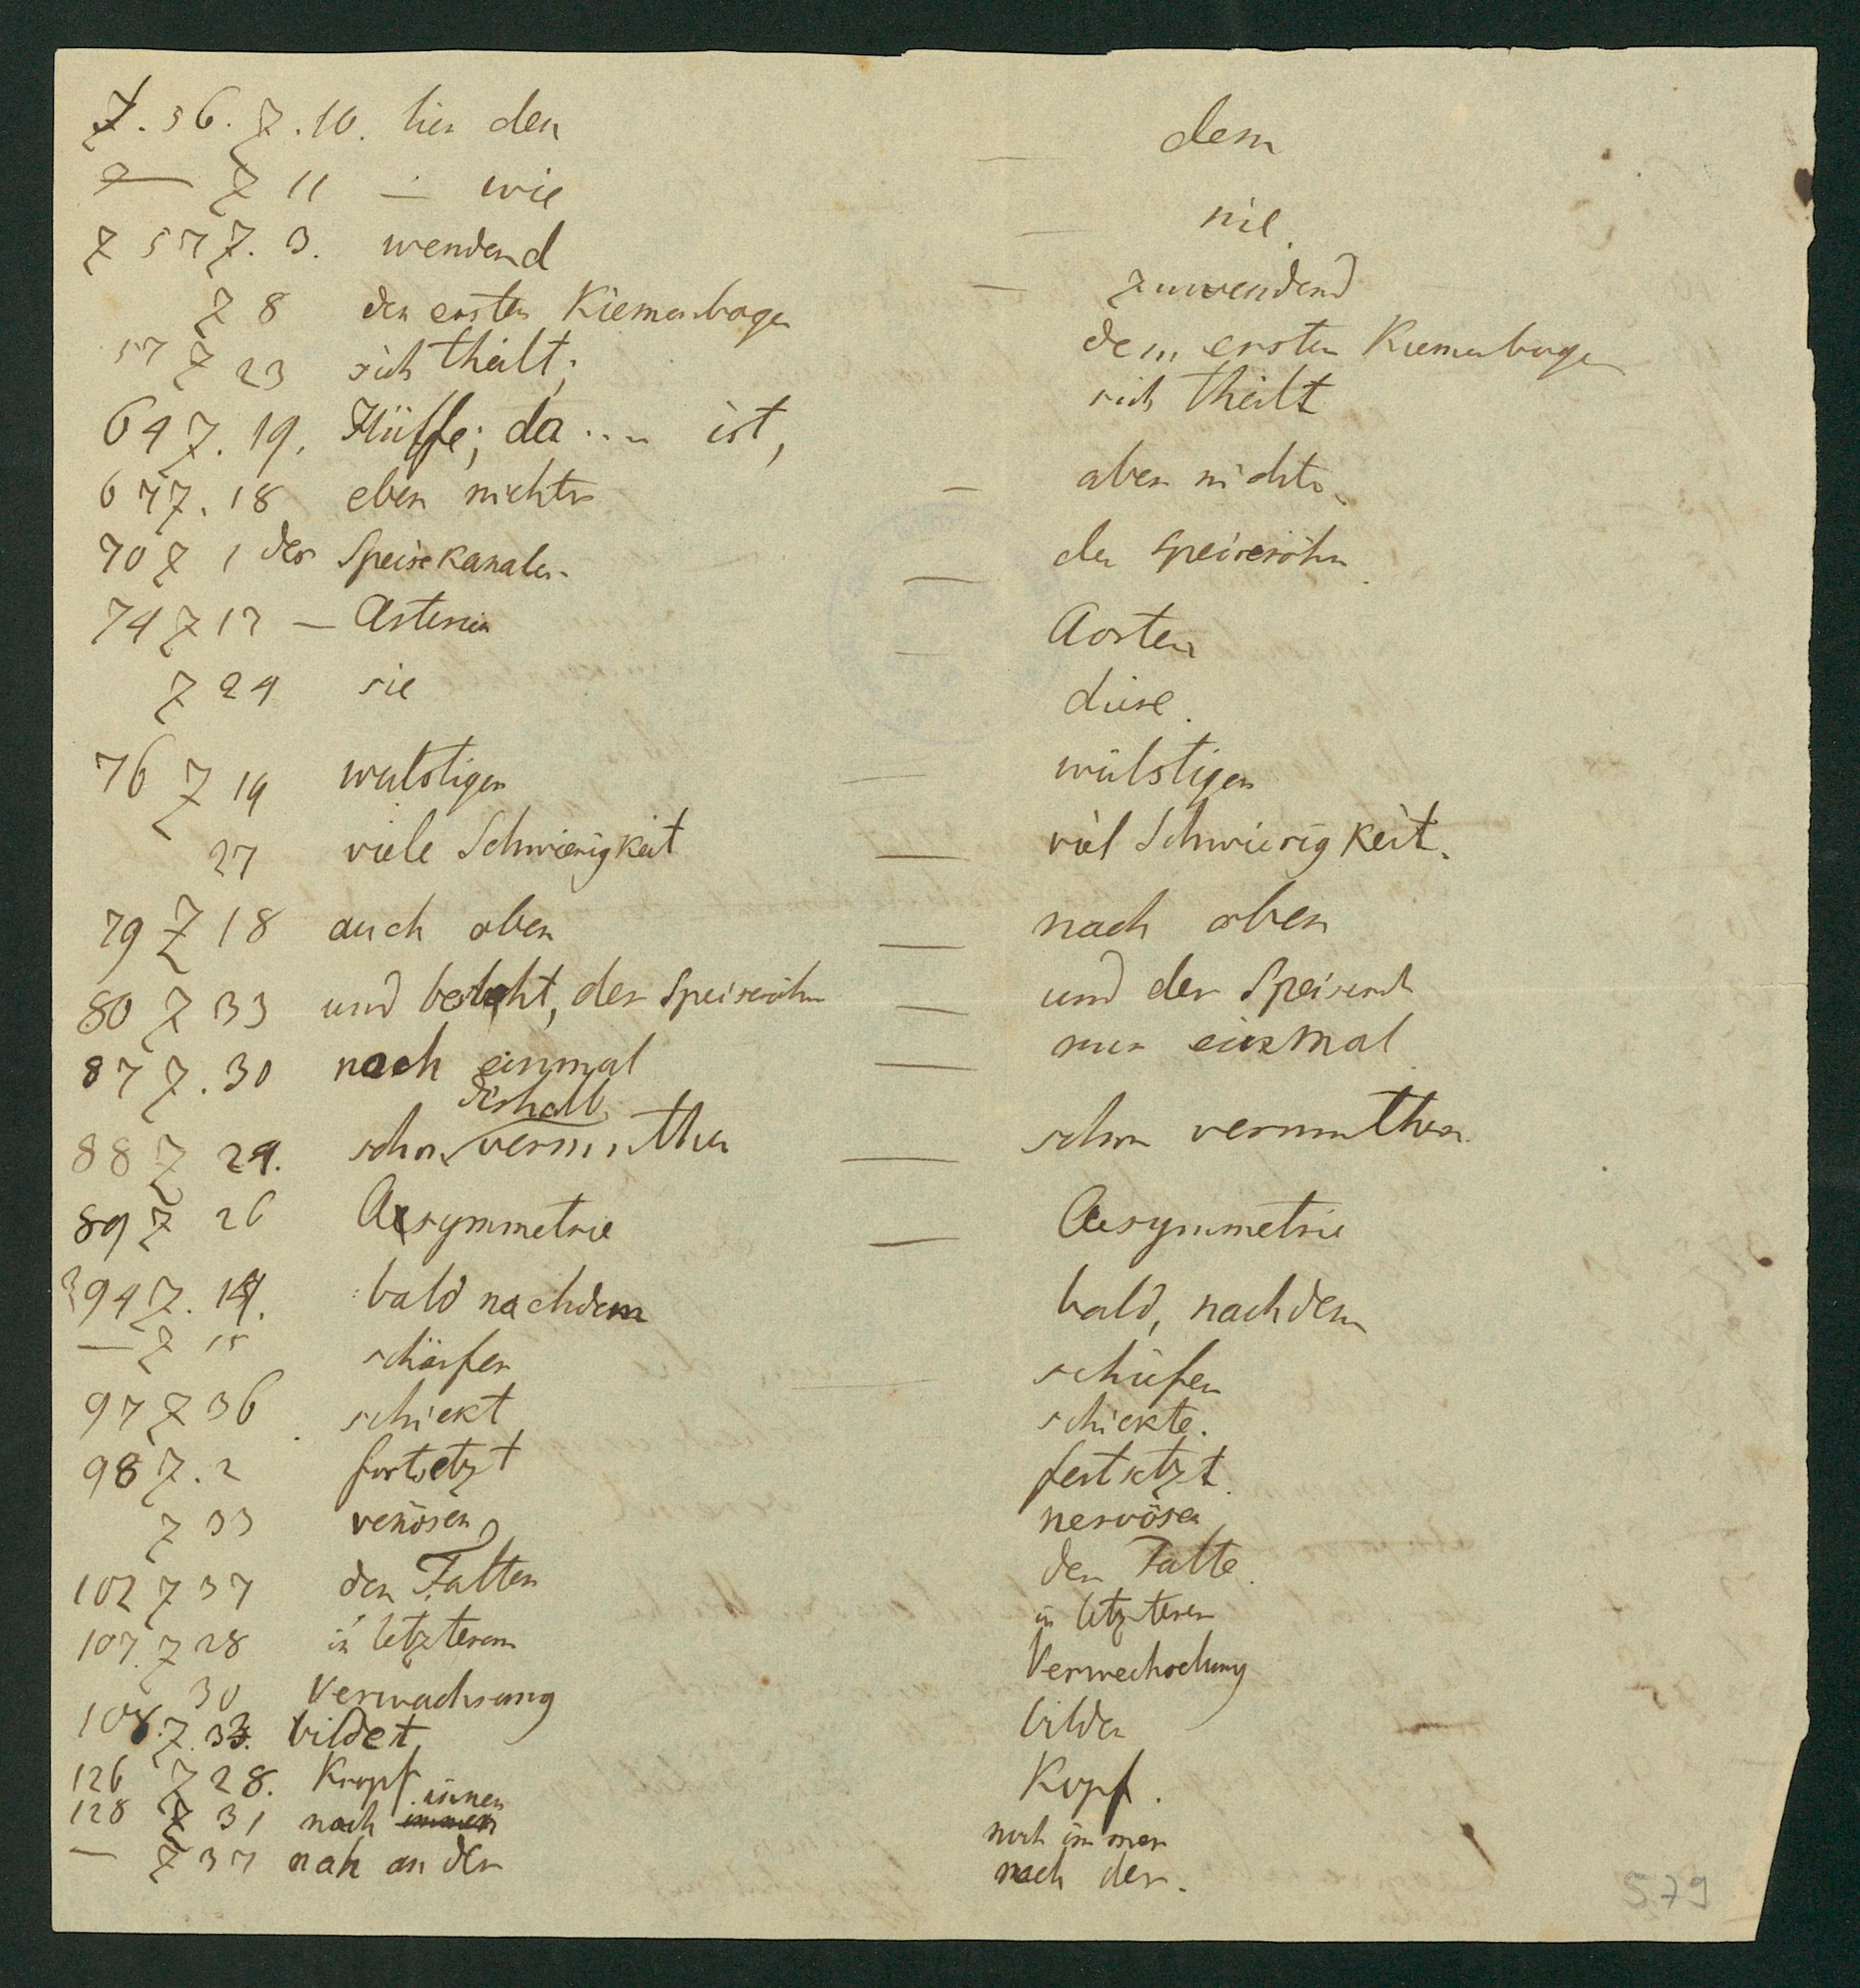 Z. 56. Z. 10. lies den — dem
— Z 11 — wie — nie.
Z 57 Z. 3. wendend — zuwendend
Z 8 den ersten Kiemenbogen dem ersten Kiemenbogen
57 Z 23 sich theilt; sich theilt
64 Z. 19. Hüffe; da .... ist,
67 Z. 18 eben nichts — aber nichts.
70 Z 1 des Speisekanales — der Speiseröhre
74 Z 17 — Arterien — Aorten
Z 29 sie diese.
76 Z 19 wulstigen — wülstigen
27 viele Schwierigkeit — viel Schwierigkeit.
79 Z 18 auch oben — nach oben
80 Z 33 und besteht, der Speiseröhre — und der Speiseröh
87 Z. 30 noch einmal — nun einmal
deshalb
88 Z 29. schon vermuthen — schon vermuthen.
89 Z 26 Asymmetrie — Aesymmetrie
94 Z. 14. bald nachdem bald, nachdem
— Z 15 schärfer — schiefer
97 Z 36 schickt schickte.
98 Z. 2 fortsetzt festsetzt.
Z 33 venösen nervösen
102 Z 37 den Falten der Falte.
107. Z 28 in letzterem in letzteren
30 Verwachsung Verwechselung
108. Z. 33. bildet bilden
126 Z 28. Kropf Kopf.
innen
128 Z 31 nach immer noch immer
— Z 37 nah an der nach der.
579